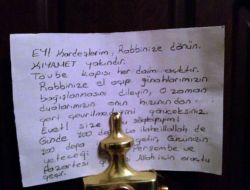 EY! Kardeşlerim, Rabbinize dönün.
KIYAMET yakındır.
Tövbe kapısı her daim açıktır.
Rabbinize el açıp günahlarınızın
bağışlanmasını dileyin. O zaman
dualarınızın onun huzurundan
geri çevrilmediğini göreceksiniz.
Evet! size söylüyorum!
Günde 100 defa La ilaheillallah de
100 defa getir, Gücünüzün
yeteceği Perşembe ve
Pazartesi Allah için oruçlu
geçir.